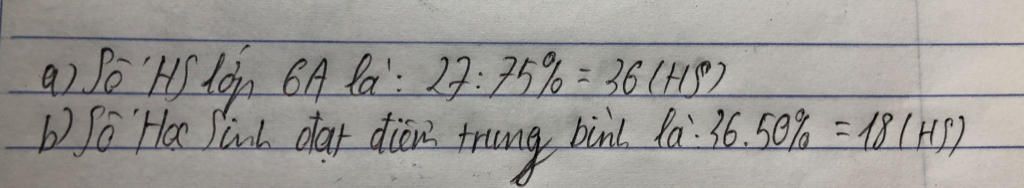 a) Số HS lớp 6A là: 27:75% = 36 (HS)
b) Số Học Sinh đạt điểm trung bình là: 36.50% = 18 (HS)